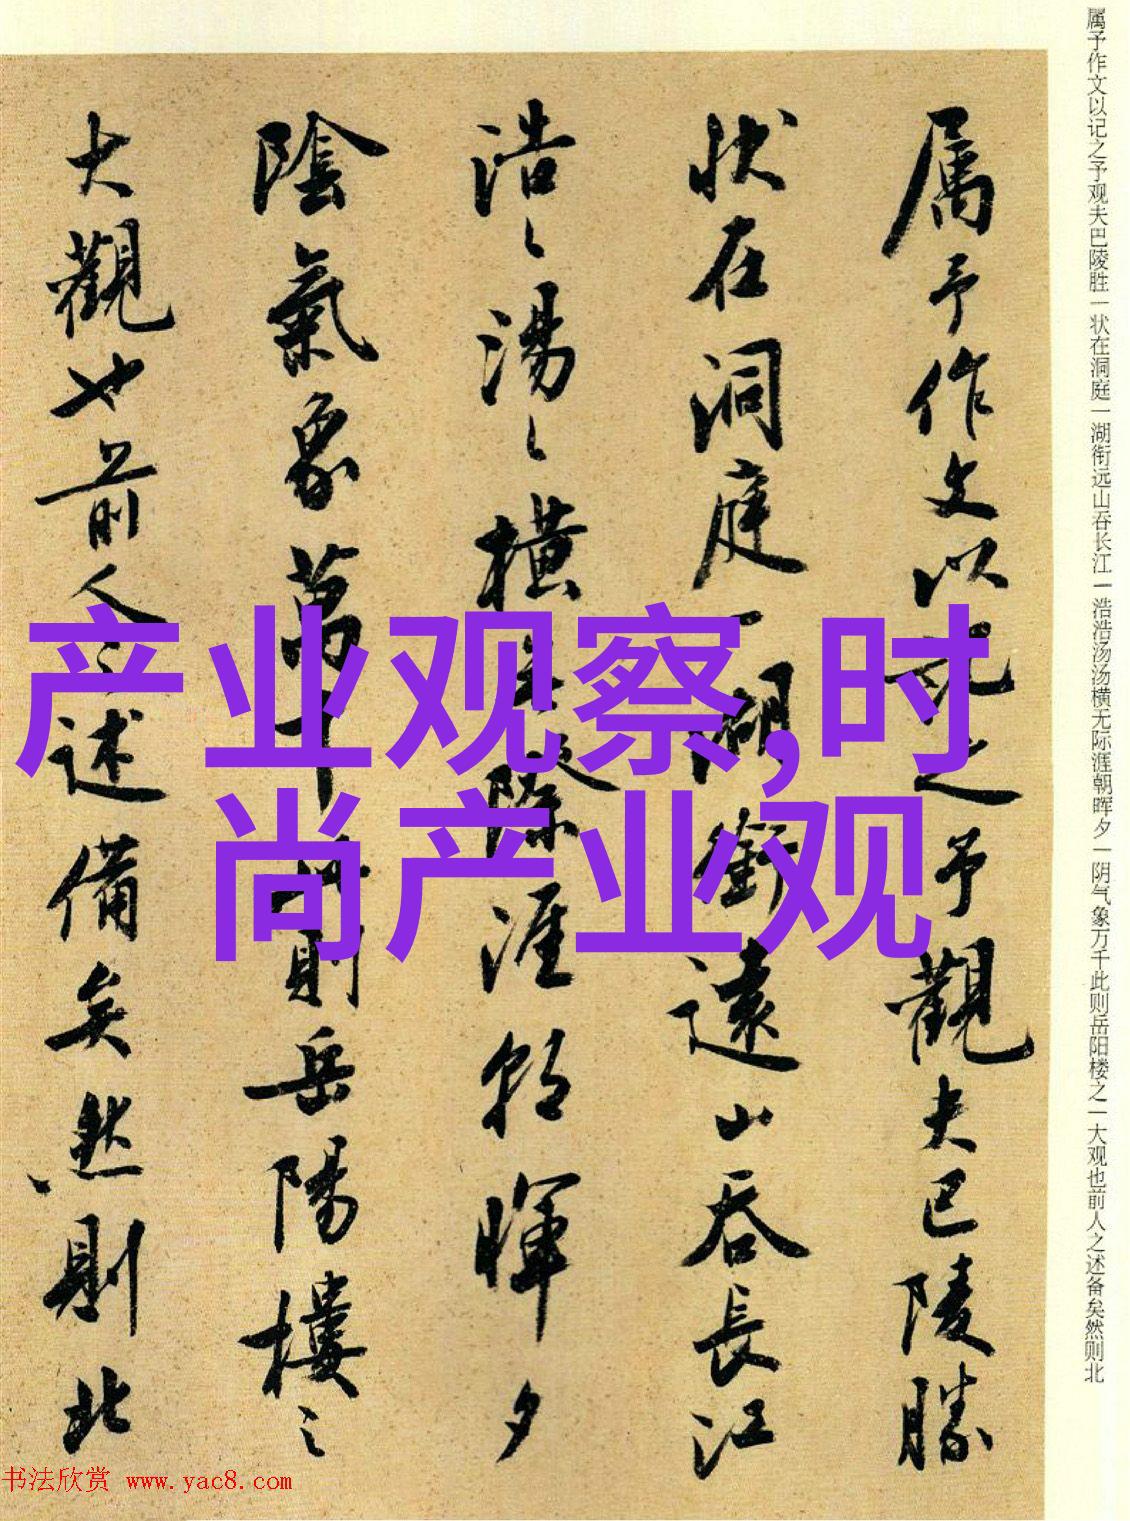 属予作文以记之予观夫巴陵胜一状在洞庭一湖衔远山吞长江一浩浩汤汤横无际涯朝晖夕一阴气象万千此则岳阳楼之一大观也前人之述备矣然则北
属予作文以记之予觀夫巴陵勝
状在洞庭一湖銜遠山吞長江
浩〻湯〻橫無際涯朝暉夕
陰氣象萬千此則岳陽樓之
大觀也前人之述備矣然則北
产业观察,时
尚产业观
书法欣赏 www.yac8.com